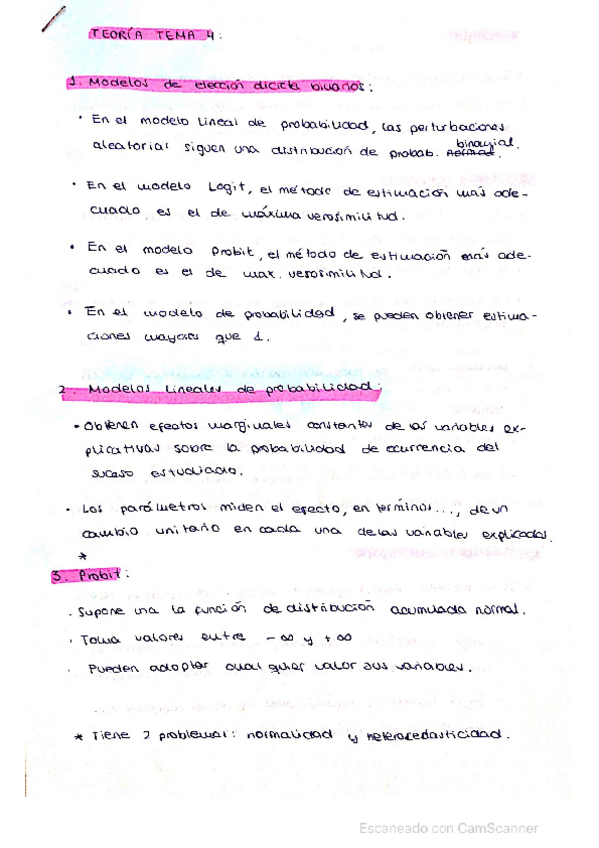 TEORÍA TEMA 4:
1. Modelos de elección discreta binarios:
· En el modelo lineal de probabilidad, las perturbaciones
binomial.
aleatorias siguen una distribución de probab. normal.
· En el modelo Logit, el método de estimación más ade-
cuado es el de máxima verosimilitud.
· En el modelo Probit, el método de estimación más ade-
cuado es el de max. verosimilitud.
· En el modelo de probabilidad, se pueden obtener estima-
ciones mayores que 1.
2. Modelos lineales de probabilidad:
· Obtienen efectos marginales constantes de las variables ex-
plicativas sobre la probabilidad de ocurrencia del
suceso estudiado.
· Los parámetros miden el efecto, en términos..., de un
cambio unitario en cada una de las variables explicadas.
*
3. Probit:
· Supone una la función de distribución acumulada normal.
· Toma valores entre -∞ y +∞
· Pueden adoptar cualquier valor sus variables.
* Tiene 2 problemas: normalidad y heterocedasticidad.
Escaneado con CamScanner